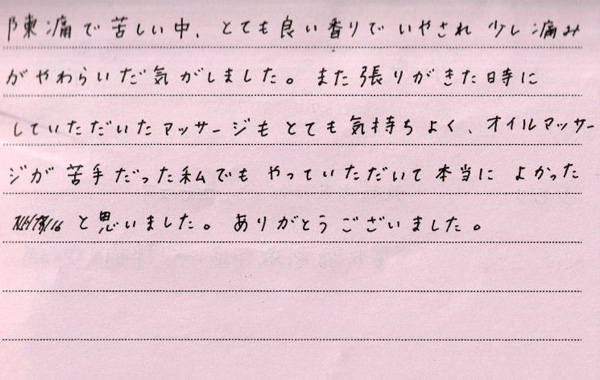 陣痛で苦しい中、とても良い香りでいやされ 少し痛み
がやわらいだ気がしました。また張りがきた時に
していただいたマッサージもとても気持ちよく、オイルマッサー
ジが苦手だった私でもやっていただいて本当によかった
と思いました。ありがとうございました。